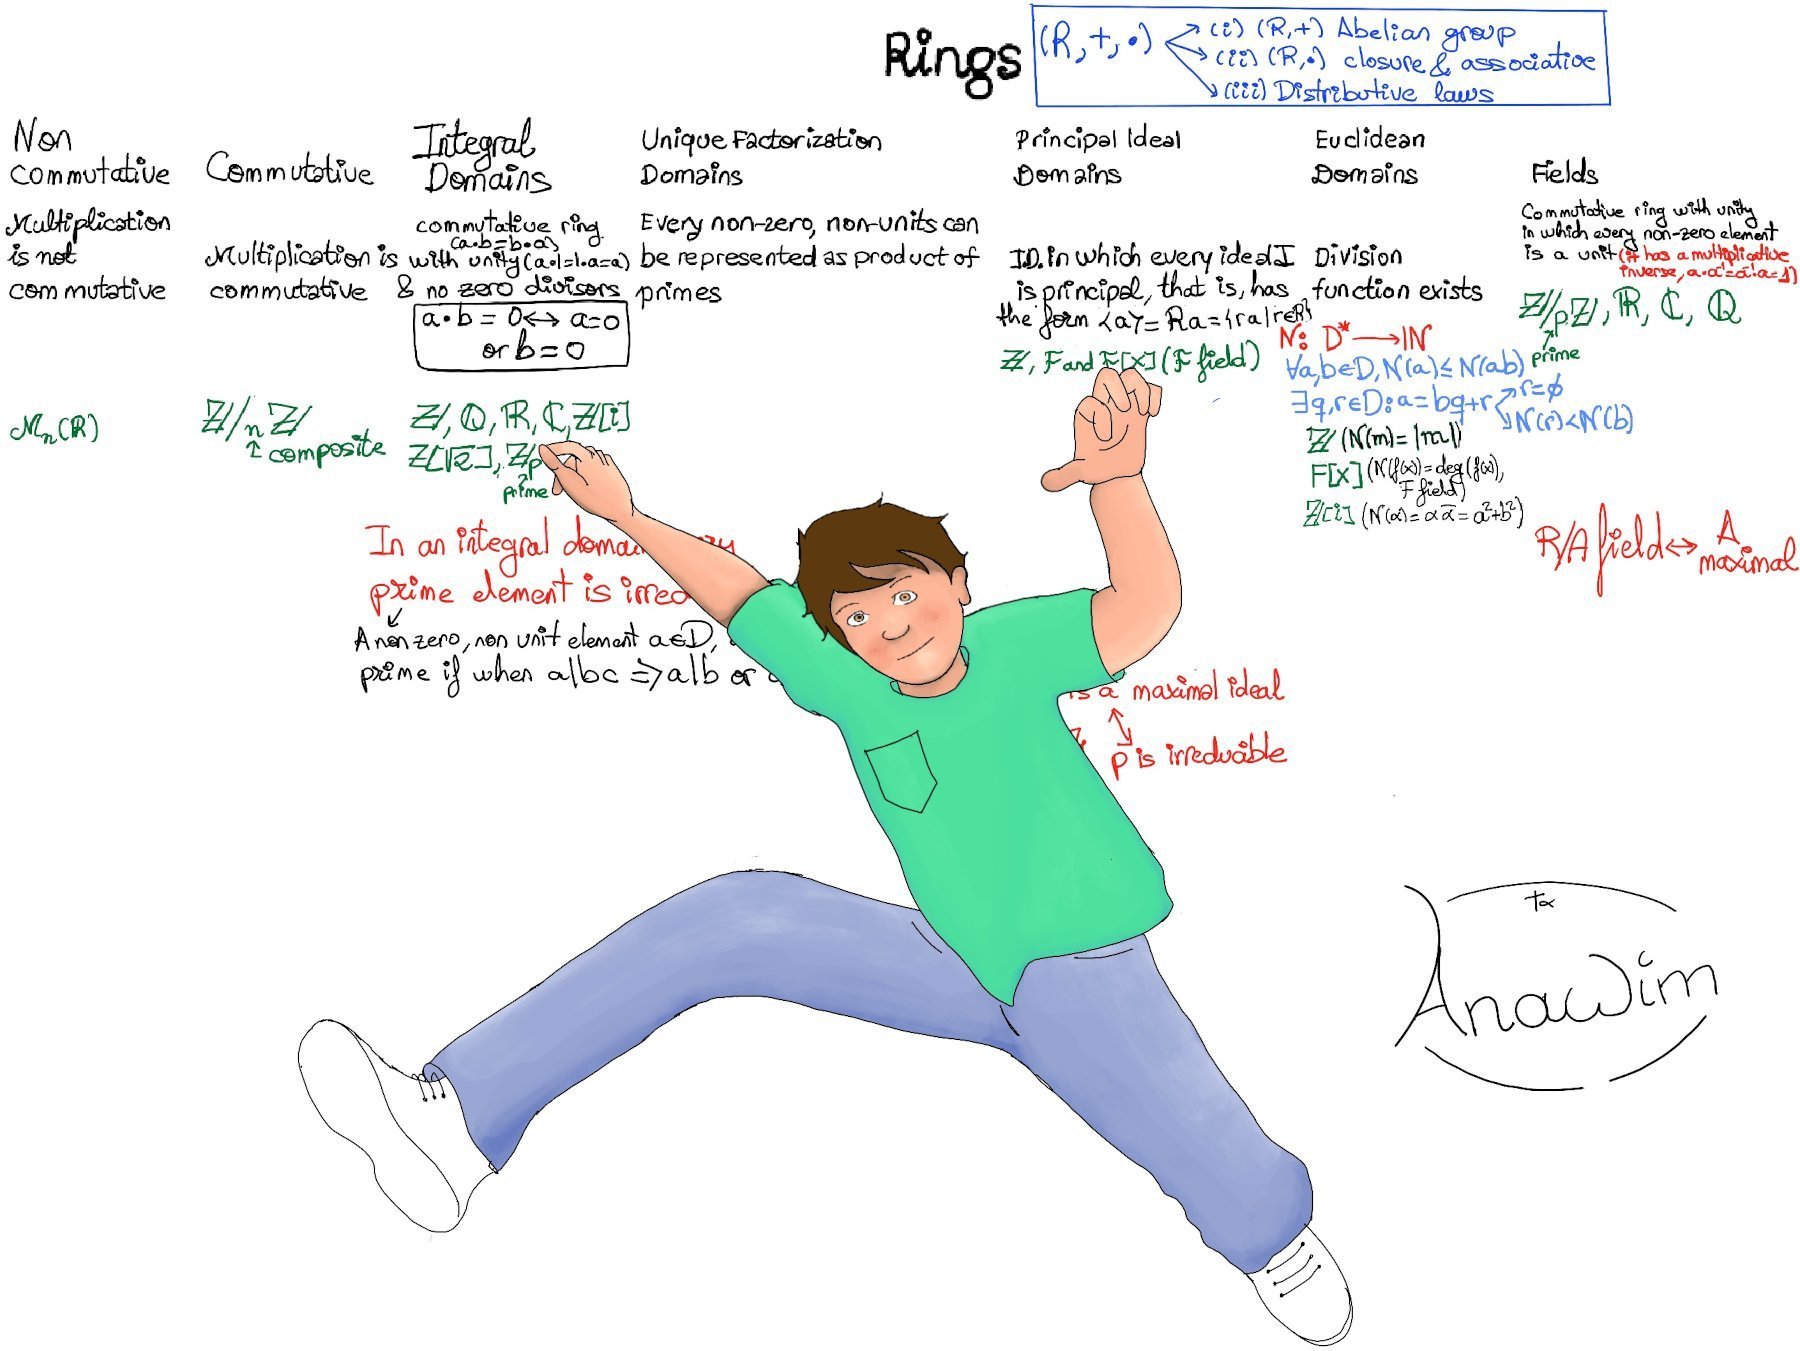 Rings
(R,+,•)
(i) (R,+) Abelian group
(ii) (R,•) closure & associative
(iii) Distributive laws
Non
commutative
Multiplication
is not
commutative
Mₙ(ℝ)
Commutative
Multiplication is
commutative
ℤ/nℤ
composite
Integral
Domains
commutative ring
(a•b=b•a)
with unity (a•1=1•a=a)
& no zero divisors
a•b = 0 ↔ a=0
or b = 0
ℤ, ℚ, ℝ, ℂ, ℤ[i]
ℤ[√2], ℤp
prime
In an integral
prime element is
A non zero, non unit element a∈D,
prime if when a|bc => a|b or
Unique Factorization
Domains
Every non-zero, non-units can
be represented as product of
primes
Principal Ideal
Domains
I.D. in which every ideal I
is principal, that is, has
the form <a> = Ra = {ra|r∈R}
ℤ, F and F[x] (F field)
is a maximal ideal
p is irreduable
Euclidean
Domains
Division
function exists
N: D* → ℕ
∀a,b∈D, N(a) ≤ N(ab)
∃q,r∈D: a = bq+r
r=ϕ
N(r)<N(b)
ℤ (N(m) = |m|)
F[x] (N(f(x)) = deg(f(x),
F field)
ℤ[i] (N(α) = αᾱ = a²+b²)
Fields
Commutative ring with unity
in which every non-zero element
is a unit (it has a multiplicative
inverse, a•a⁻¹=a⁻¹a=1)
ℤ/pℤ, ℝ, ℂ, ℚ
prime
R/A field ↔ A
maximal
Anawim